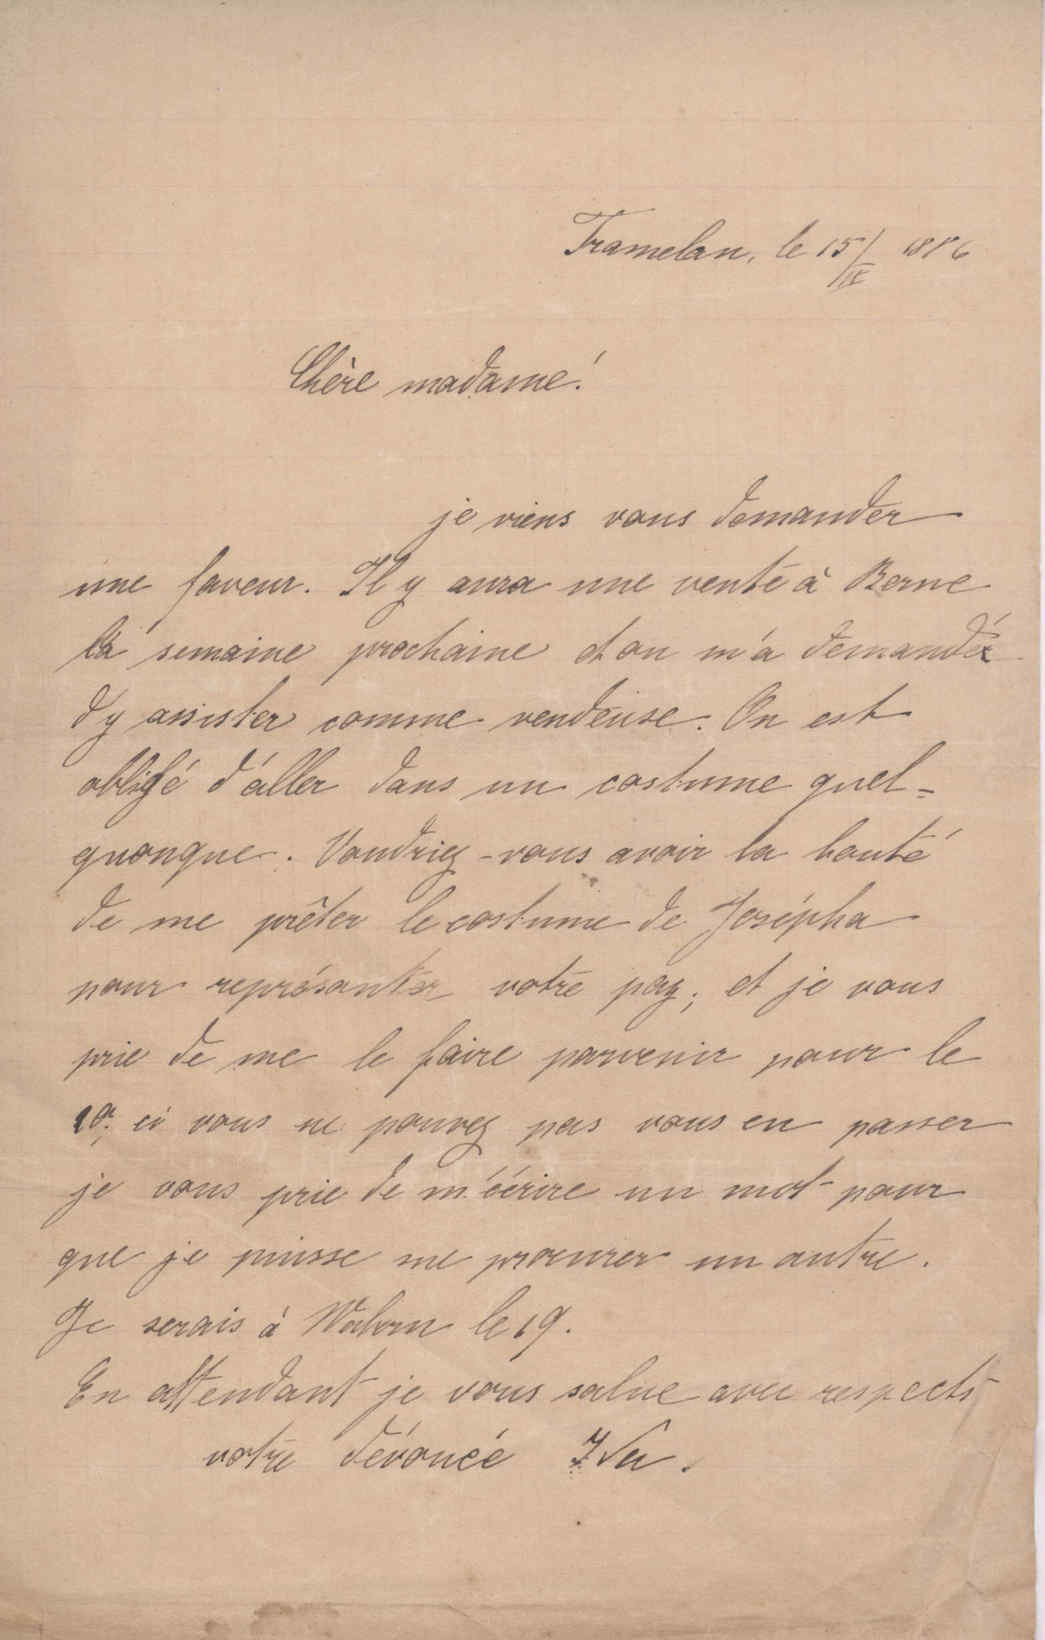 Tramelan, le 15/IX 1886
Chère madame!
je viens vous demander
une faveur. Il y aura une vente à Berne
la semaine prochaine et on m'a demandé
d'y assister comme vendeuse. On est
obligé d'aller dans un costume quel=
quonque. Voudriez-vous avoir la bonté
de me prêter le costume de Josépha
pour représanter votre pay; et je vous
prie de me le faire parvenir pour le
19; si vous ne pouvez pas vous en passer
je vous prie de m'écrire un mot pour
que je puisse me procurer un autre.
Je serais à Wabern le 19.
En attendant je vous salue avec respects
votre dévouée